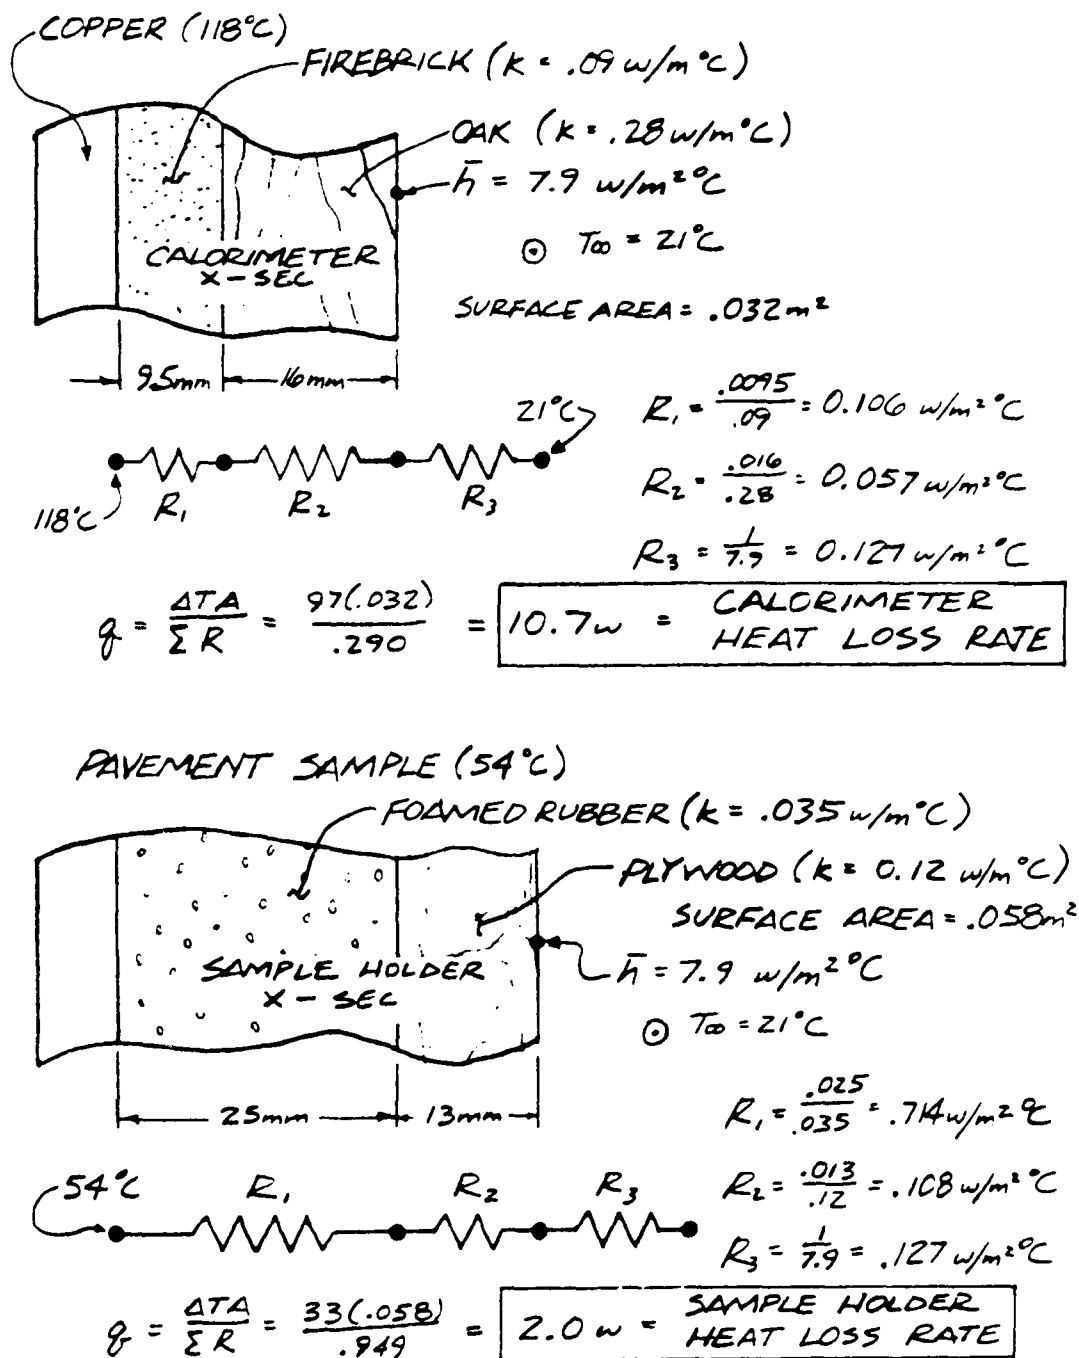 COPPER (118°C)
FIREBRICK (k = .09 w/m°C)
OAK (k = .28 w/m°C)
h̄ = 7.9 w/m²°C
⊙ T∞ = 21°C
CALORIMETER
X-SEC
SURFACE AREA = .032m²
9.5mm 16mm
R₁ = .0095/.09 = 0.106 w/m²°C
21°C
R₂ = .016/.28 = 0.057 w/m²°C
118°C R₁ R₂ R₃
R₃ = 1/7.9 = 0.127 w/m²°C
q = ΔTA/ΣR = 97(.032)/.290 = 10.7w = CALORIMETER
HEAT LOSS RATE
PAVEMENT SAMPLE (54°C)
FOAMED RUBBER (k = .035 w/m°C)
PLYWOOD (k = 0.12 w/m°C)
SURFACE AREA = .058m²
SAMPLE HOLDER
X-SEC
h̄ = 7.9 w/m²°C
⊙ T∞ = 21°C
25mm 13mm
R₁ = .025/.035 = .714 w/m²°C
54°C R₁ R₂ R₃
R₂ = .013/.12 = .108 w/m²°C
R₃ = 1/7.9 = .127 w/m²°C
q = ΔTA/ΣR = 33(.058)/.949 = 2.0 w = SAMPLE HOLDER
HEAT LOSS RATE